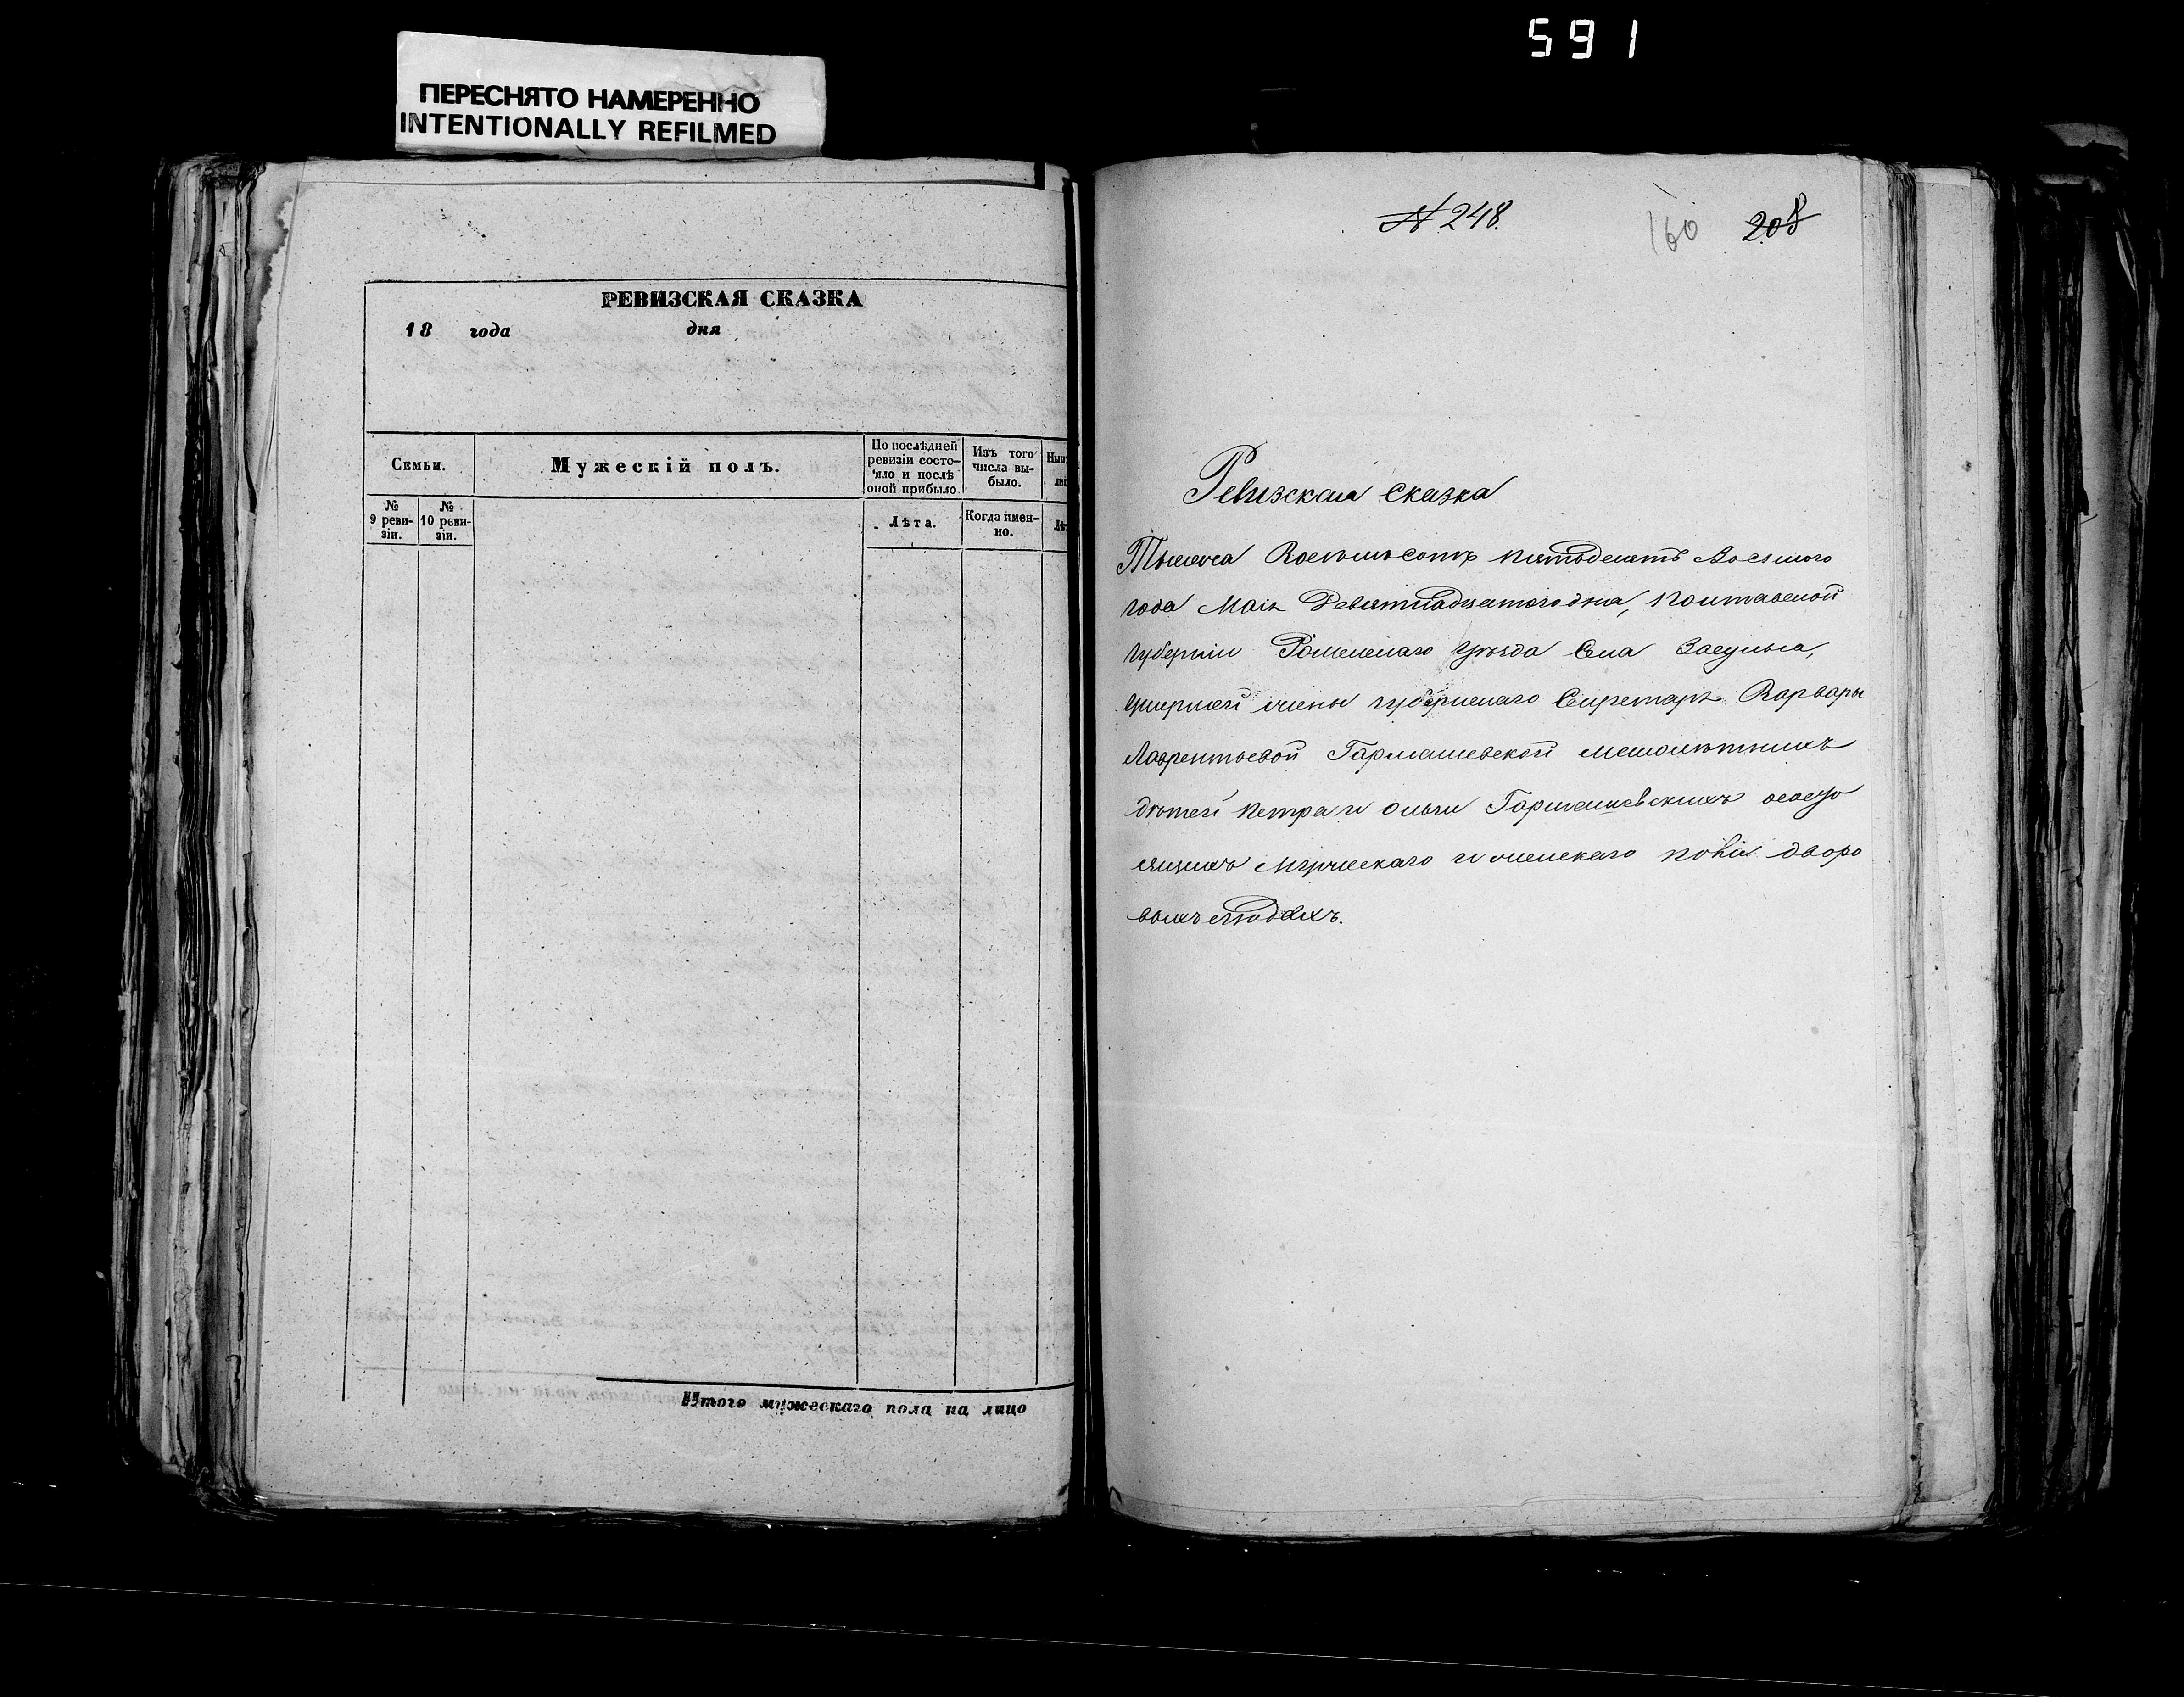 591
ПЕРЕСНЯТО НАМЕРЕННО
INTENTIONALLY REFILMED
РЕВИЗСКАЯ СКАЗКА
18 года дня
Семьи.
№ 9 реви-зіи.
№ 10 реви-зіи.
Мужескій полъ.
По послѣдней
ревизіи состо-
яло и послѣ
оной прибыло
Лѣта.
Изъ того
числа вы-
было.
Когда имен-
но.
Итого мужескаго пола на лицо
№ 248.
160 208
Ревизская сказка
Тысяча Восемьсотъ пятьдесятъ Восьмого
года Мая Девятнадцатого дня, Полтавской
губерніи Роменскаго Уѣзда Села Засулья,
умершей жены губернскаго Секретаря Варвары
Лаврентьевой Гармашевской малолѣтнихъ
дѣтей Петра и Ольги Гармашевскихъ о
мужескаго и женскаго пола дворо
выхъ людяхъ.